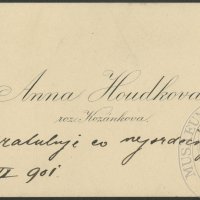 Anna Houdkova
roz. Kozánkova.
gratuluje co nejsrdečn
VI 901.
MUSEUM